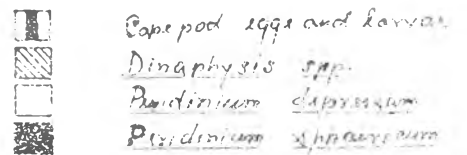 Copepod eggs and larvae
Dinophysis spp.
Peridinium depressum
Peridinium